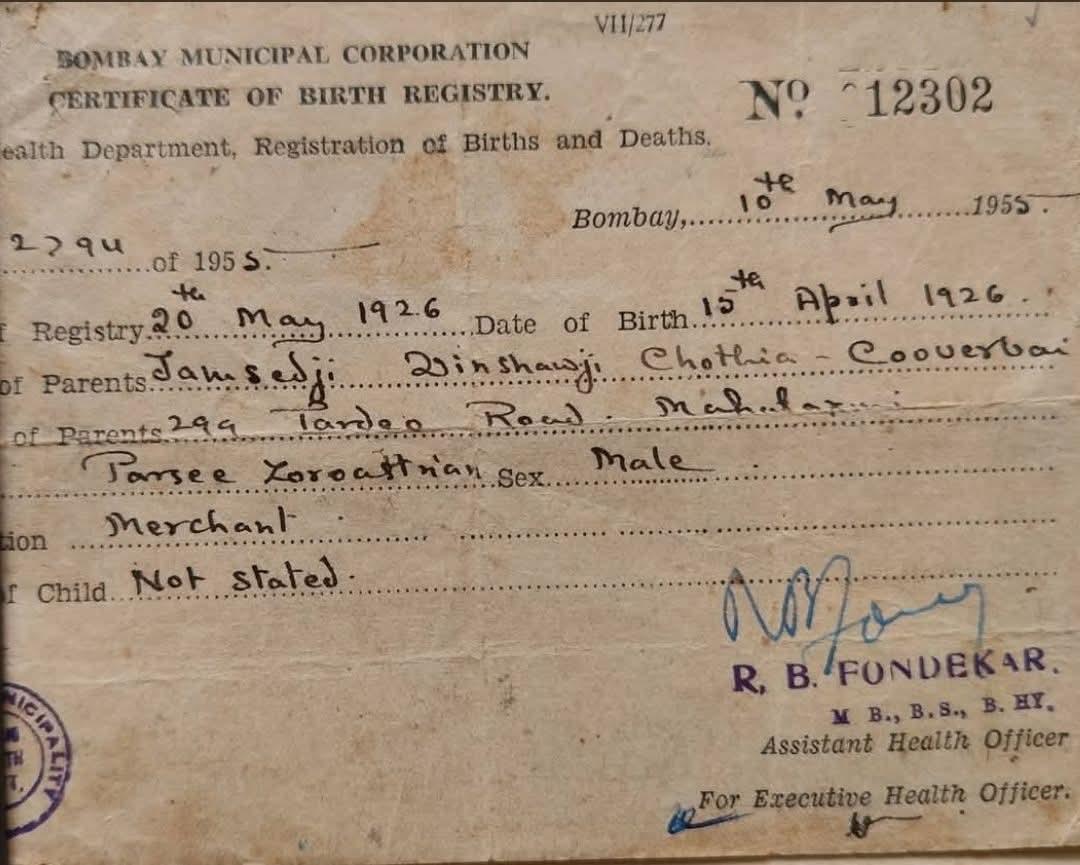 VII/277
BOMBAY MUNICIPAL CORPORATION
CERTIFICATE OF BIRTH REGISTRY.
Nº 12302
ealth Department, Registration of Births and Deaths.
Bombay, 10th May 1955.
2794 of 1955.
f Registry 20th May 1926 Date of Birth 15th April 1926.
of Parents Jamsedji Dinshawji Chothia - Cooverbai
of Parents 299 Tardeo Road. Mahalaxmi
Parsee Zoroastrian Sex Male
tion Merchant
f Child Not stated.
R. B. FONDEKAR.
M B., B.S., B. HY.
Assistant Health Officer
For Executive Health Officer.
NICIPALITY